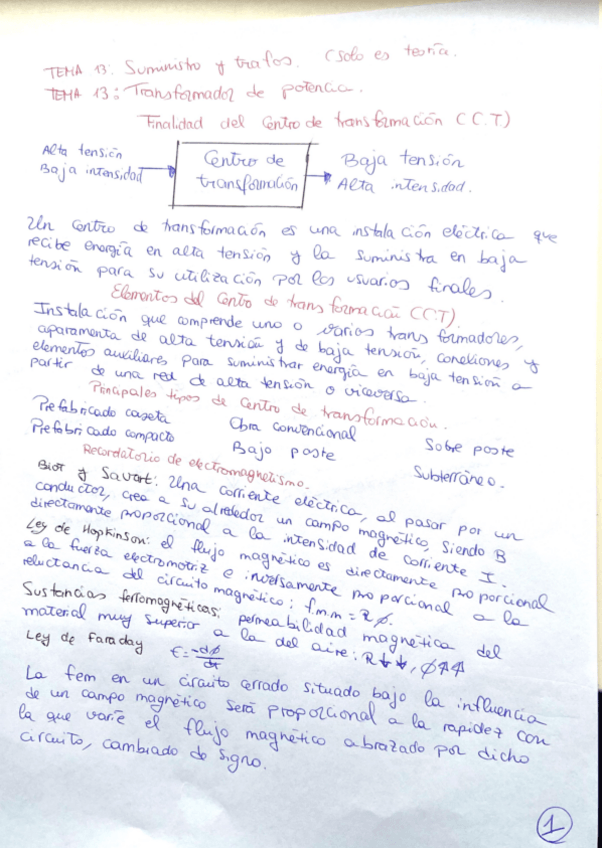 TEMA 13: Suministro y trafos. (solo es teoría.
TEMA 13: Transformador de potencia.
Finalidad del Centro de transformación (C.T)
Alta tensión
Baja intensidad
Centro de
transformación
Baja tensión
Alta intensidad.
Un centro de transformación es una instalación eléctrica que
recibe energía en alta tensión y la suministra en baja
tensión para su utilización por los usuarios finales.
Elementos del Centro de transformación (C.T).
Instalación que comprende uno o varios transformadores,
aparamenta de alta tensión y de baja tensión, conexiones y
elementos auxiliares para suministrar energía en baja tensión a
partir de una red de alta tensión o viceversa.
Principales tipos de Centro de transformación.
Prefabricado caseta Obra convencional Sobre poste
Prefabricado compacto Bajo poste Subterráneo.
Recordatorio de electromagnetismo.
Biot y Savart: Una corriente eléctrica, al pasar por un
conductor, crea a su alrededor un campo magnético, siendo B
directamente proporcional a la intensidad de corriente I.
Ley de Hopkinson: el flujo magnético es directamente proporcional
a la fuerza electromotriz e inversamente proporcional a la
reluctancia del circuito magnético; fmm = R φ.
Sustancias ferromagnéticas: permeabilidad magnética del
material muy superior a la del aire: R↓↓, φ↑↑
Ley de Faraday ε = -dφ/dt
La fem en un circuito cerrado situado bajo la influencia
de un campo magnético será proporcional a la rapidez con
la que varíe el flujo magnético abrazado por dicho
circuito, cambiado de signo.
1